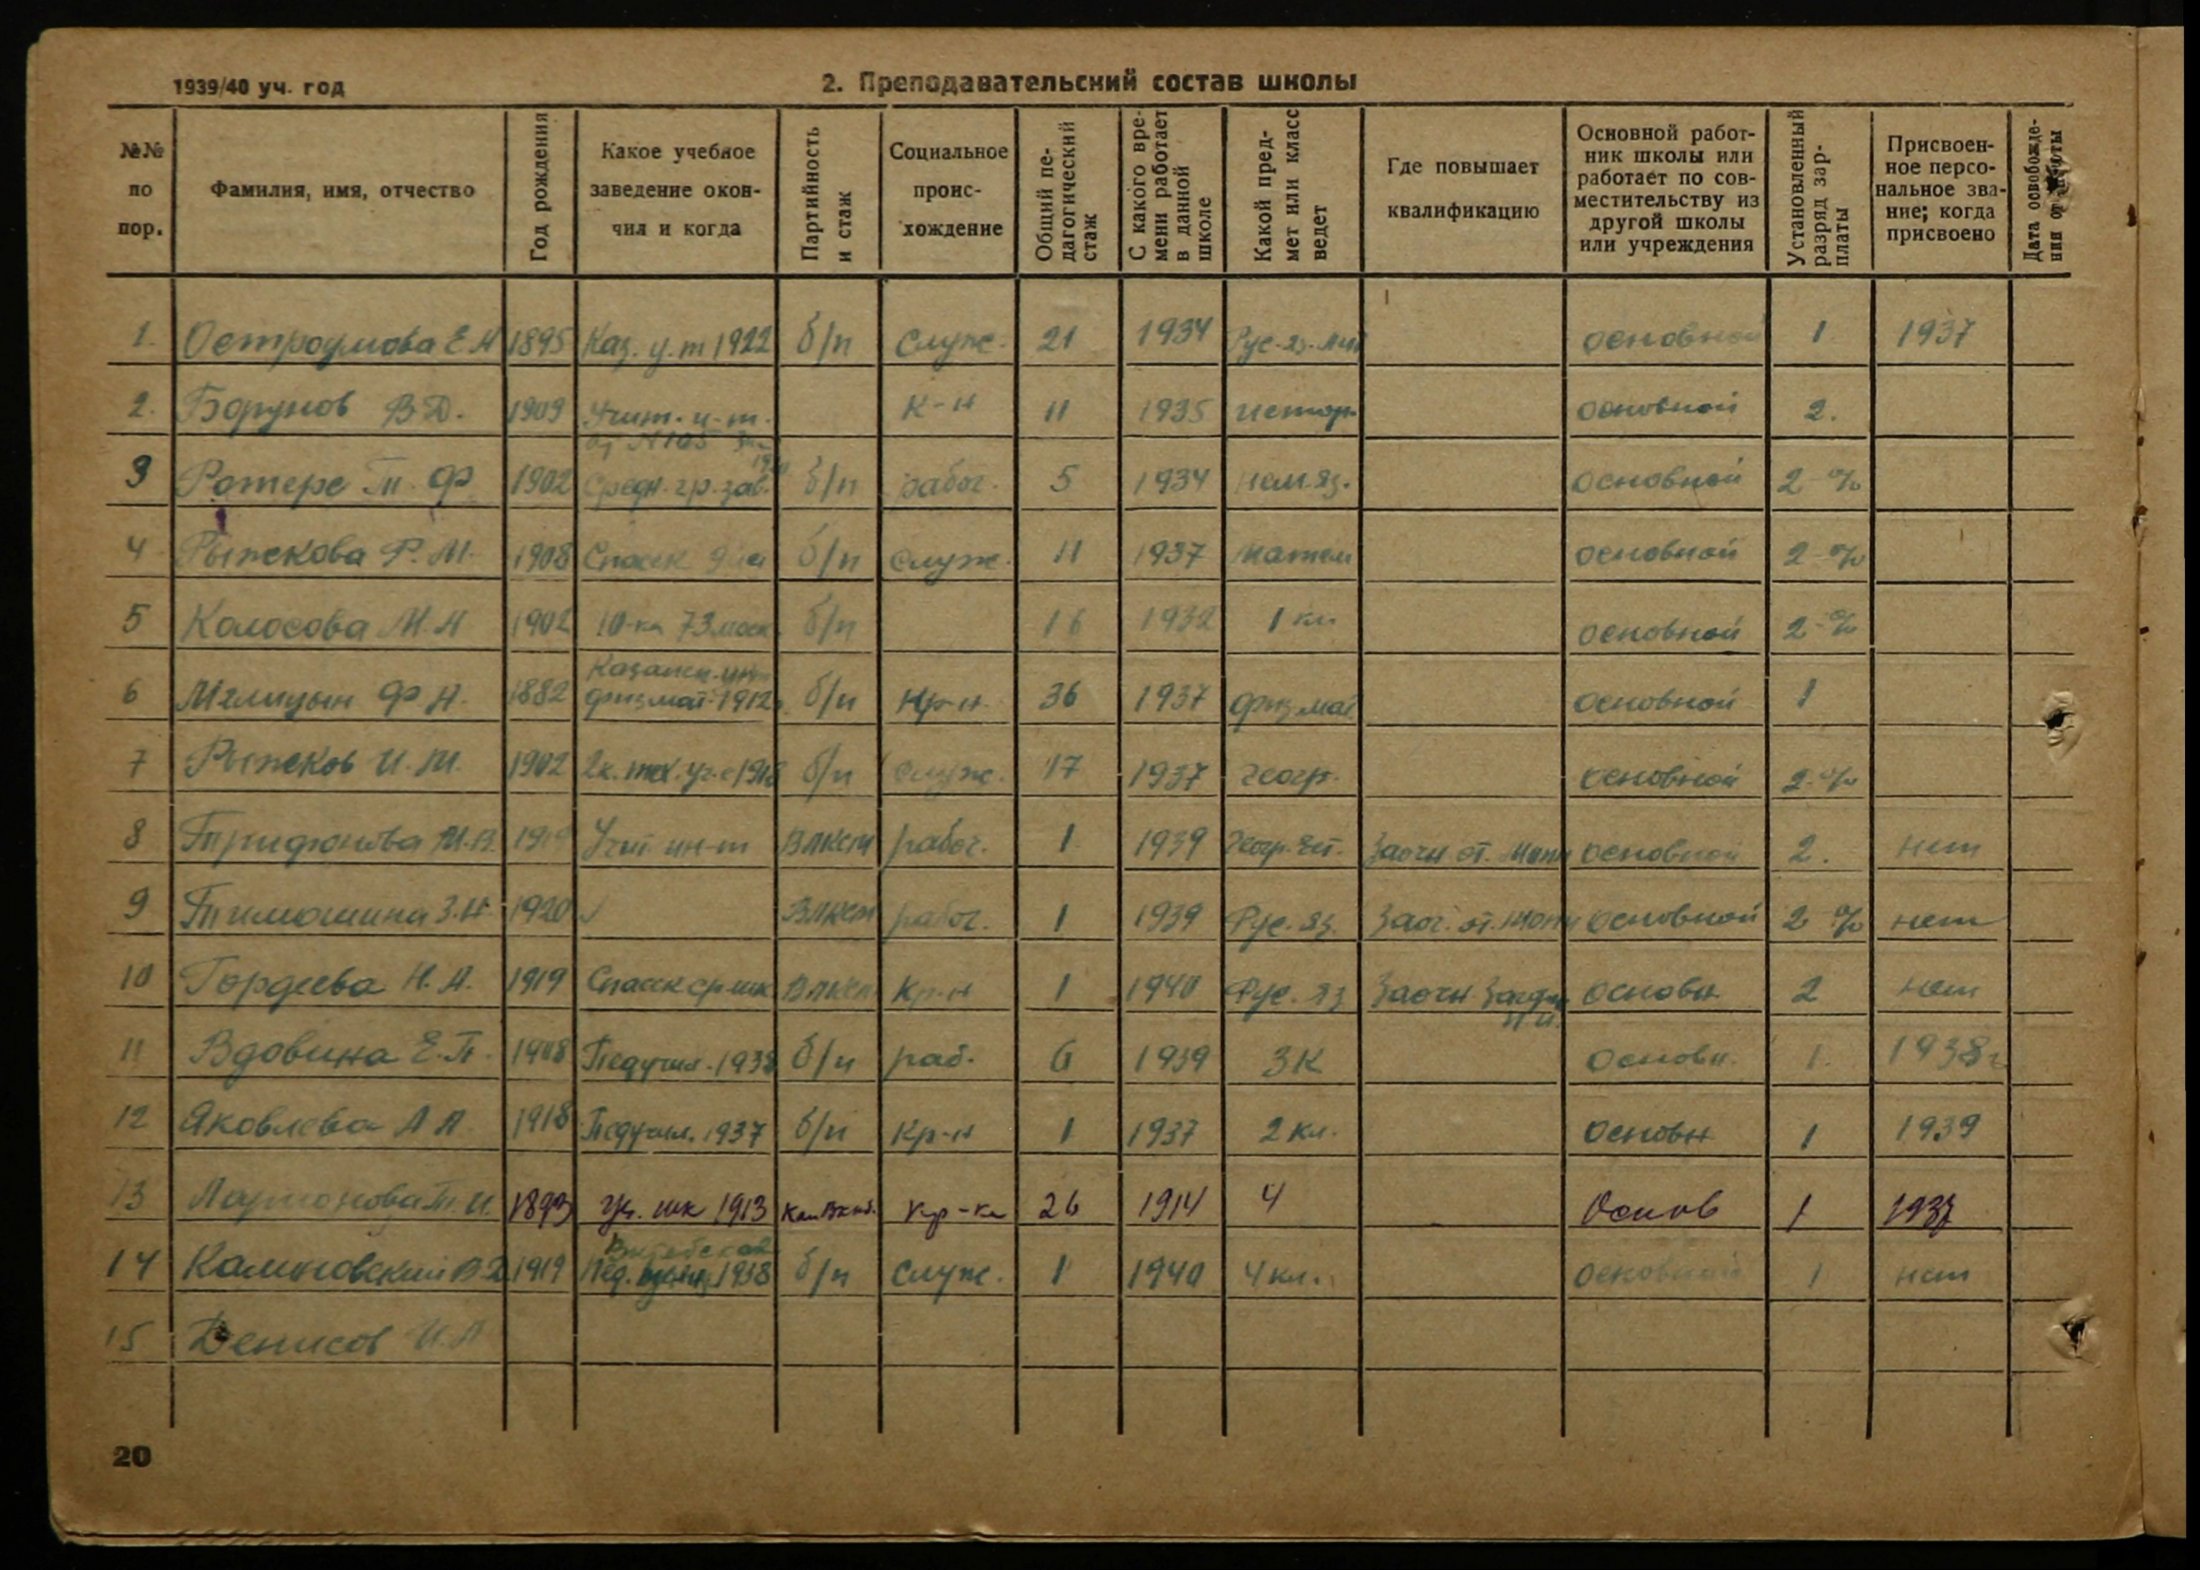 1939/40 уч. год
2. Преподавательский состав школы
№№ по пор.
Фамилия, имя, отчество
Год рождения
Какое учебное заведение окончил и когда
Партийность и стаж
Социальное происхождение
Общий педагогический стаж
С какого времени работает в данной школе
Какой предмет или класс ведет
Где повышает квалификацию
Основной работник школы или работает по совместительству из другой школы или учреждения
Установленный разряд зарплаты
Присвоенное персональное звание; когда присвоено
Дата освобождения от работы
1. Остроумова Е Н 1895 Каз. у. т 1922 б/п Служ. 21 1934 Рус. яз. лит основной 1 1937
2. Борунов В Д. 1909 Учит. и-т. к-н 11 1935 истор. основной 2.
3 Ротере Т. Ф 1902 Средн. б/п рабоч. 5 1934 Нем. яз. основной 2 %
4 Рыжкова Р. М. 1908 Спасск б/п Служ. 11 1937 матем основной 2 %
5 Колосова М. Н 1902 б/п 1932 1 кл основной 2 %
6 Ф Н. 1882 Казанск. физмат 1912 б/п кр-н 36 1937 физ. мат основной 1
7 Рыжков И. М. 1902 б/п Служ. 17 1937 геогр. основной 2 %
8 Трифонова М. В. Учит ин-т ВЛКСМ рабоч. 1 1939 Геогр. Ест. Заочн от. основной 2. нет
9 Тимошина З. Н. 1920 ВЛКСМ рабоч. 1 1939 Рус. яз. Заоч. от. основной 2 % нет
10 Гордеева Н. А. 1919 Спасск ср. шк ВЛКСМ Кр-н 1 1940 Рус. яз Заочн. основн 2 нет
11 Вдовина Е. П. 1908 Педучил. 1938 б/п раб. 6 1939 3 К основн. 1. 1938 г
12 Яковлева А А 1918 Педучил. 1937 б/п Кр-н 1 1937 2 кл. основн 1 1939
13 Ларионова П. И. 1893 шк 1913 кр-ка 26 1914 4 Основ 1
14 Калиновский В. Д 1919 Витебское Пед. 1938 б/п Служ. 1 1940 4 кл. основной 1 нет
15 Денисов И. А
20